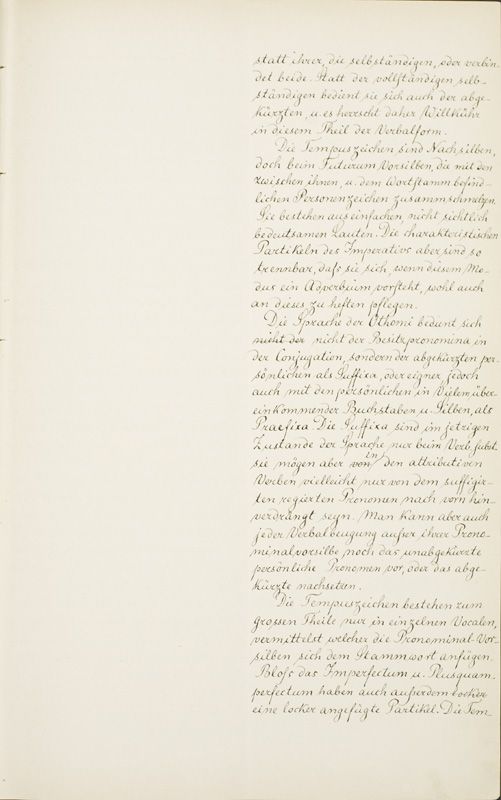 statt ihrer, die selbständigen, oder verbin-
det beide. Statt der vollständigen selb-
ständigen bedient sie sich auch der abge-
kürzten, u. es herrscht daher Willkühr
in diesem Theil der Verbalform.
Die Tempuszeichen sind Nachsilben,
doch beim Futurum Vorsilben, die mit den
zwischen ihnen, u. dem Wortstamm befind-
lichen Personenzeichen zusammschmelzen.
Sie bestehen aus einfachen, nicht sichtlich
bedeutsamen Lauten. Die charakteristischen
Partikeln des Imperativs aber sind so
trennbar, dafs sie sich, wenn diesem Mo-
dus ein Adverbium vorsteht, wohl auch
an dieses zu heften pflegen.
Die Sprache der Othomi bedient sich
nicht der nicht der Besitzpronomina in
der Conjugation, sondern der abgekürzten per-
sönlichen als Suffixa, oder eigner jedoch
auch mit den persönlichen in Vielem über-
einkommender Buchstaben u. Silben, als
Praefixa. Die Suffixa sind im jetzigen
Zustande der Sprache nur beim Verb. subst.
sie mögen aber von in den attributiven
Verben vielleicht nur von dem suffigir-
ten regierten Pronomen nach vorn hin-
verdrängt seyn. Man kann aber auch
jeder Verbalbeugung aufser ihrer Prono-
minalvorsilbe noch das unabgekürzte
persönliche Pronomen vor, oder das abge-
kürzte nachsetzen.
Die Tempuszeichen bestehen zum
grossen Theile nur in einzelnen Vocalen,
vermittelst welcher die Pronominal-Vor-
silben sich dem Stammwort anfügen.
Blofs das Imperfectum u. Plusquam-
perfectum haben auch aufserdem locker
eine locker angefügte Partikel. Die Tem-